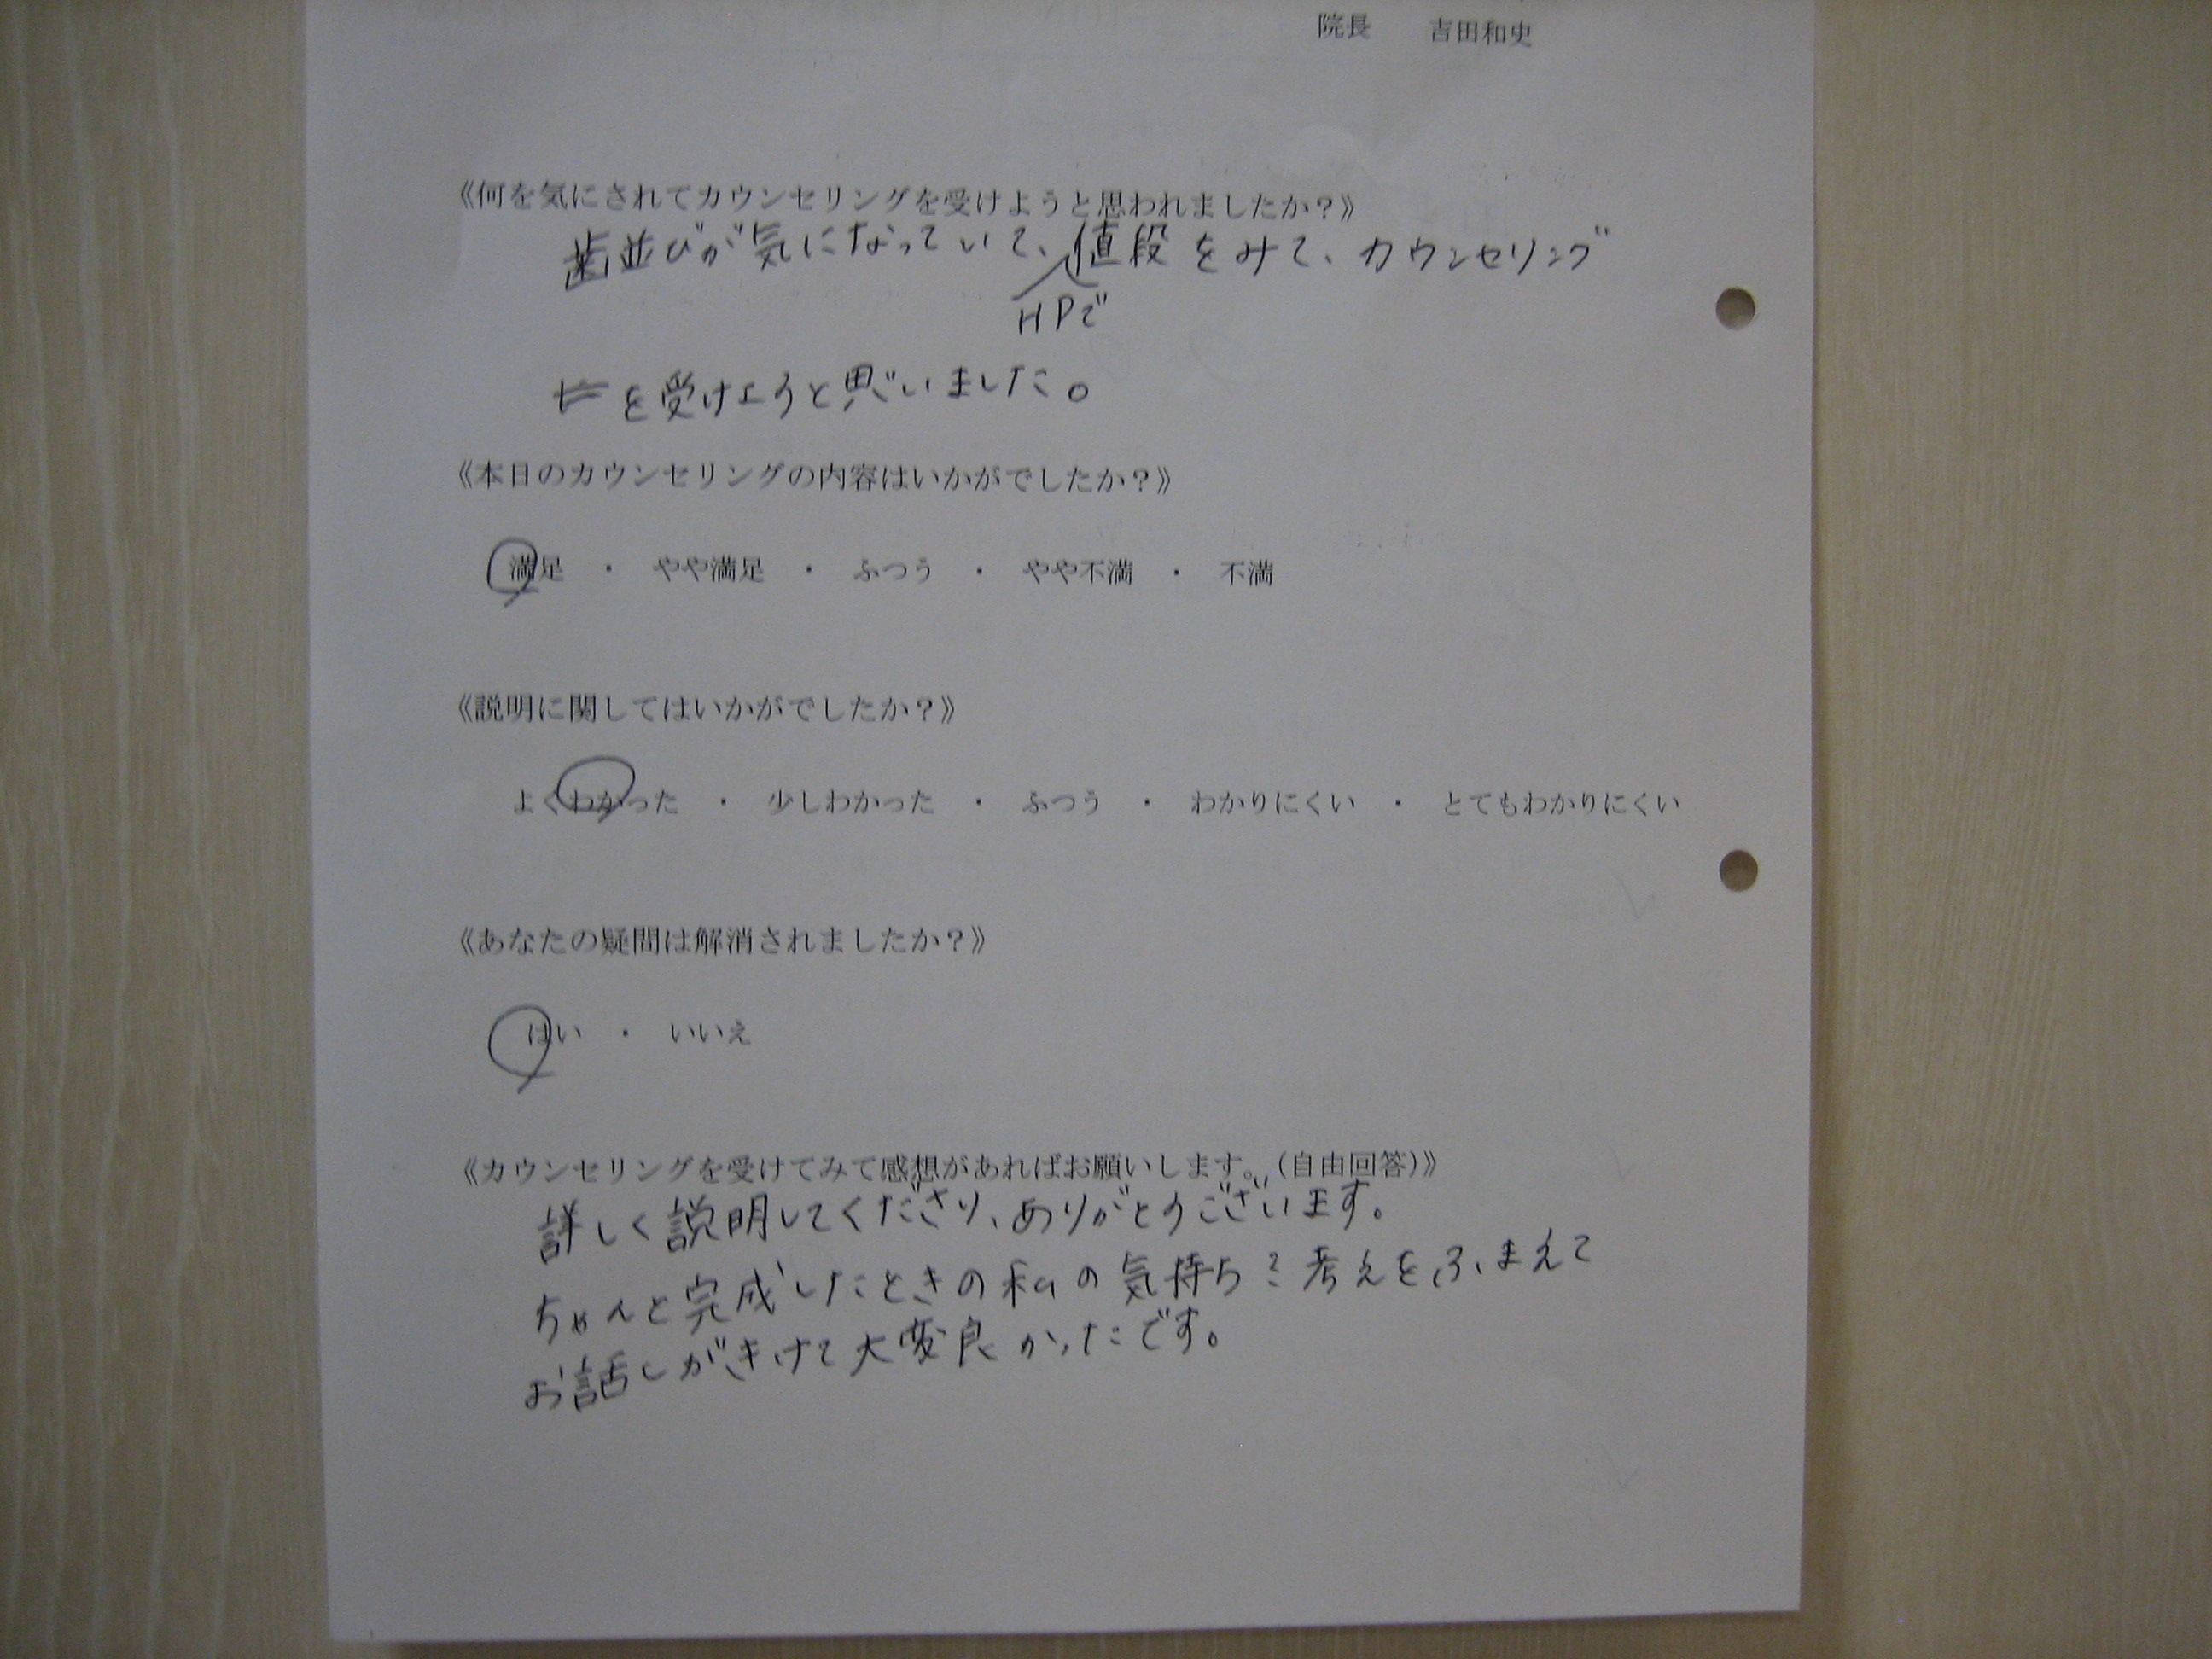 院長　吉田和史
《何を気にされてカウンセリングを受けようと思われましたか？》
歯並びが気になっていて、値段をみて、カウンセリング
HPで
を受けようと思いました。
《本日のカウンセリングの内容はいかがでしたか？》
満足　・　やや満足　・　ふつう　・　やや不満　・　不満
《説明に関してはいかがでしたか？》
よくわかった　・　少しわかった　・　ふつう　・　わかりにくい　・　とてもわかりにくい
《あなたの疑問は解消されましたか？》
はい　・　いいえ
《カウンセリングを受けてみて感想があればお願いします。（自由回答）》
詳しく説明してくださり、ありがとうございます。
ちゃんと完成したときの私の気持ち 考えをふまえて
お話しがきけて大変良かったです。